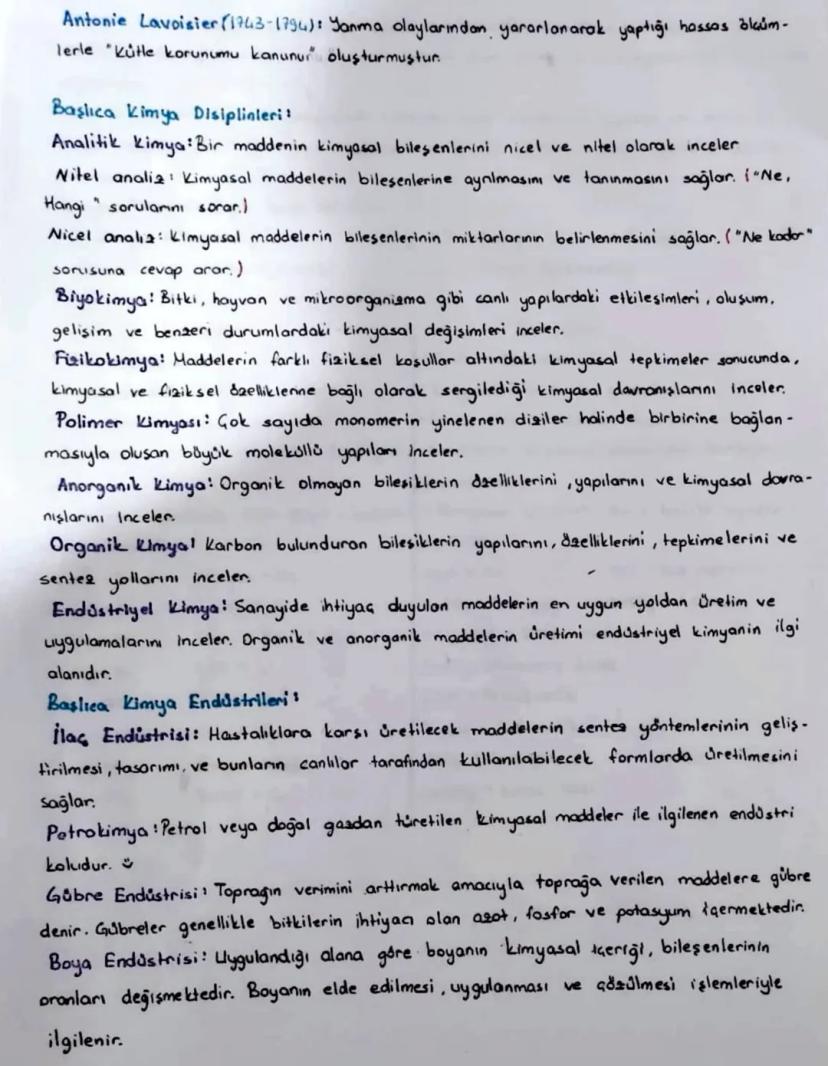 Antonie Lavoisier (1743-1794): Yanma olaylarından yararlanarak yaptığı hassas ölçüm-
lerle "Kütle korunumu kanunu" oluşturmuştur.
Başlıca Kimya Disiplinleri:
Analitik Kimya: Bir maddenin kimyasal bileşenlerini nicel ve nitel olarak inceler
Nitel analiz: Kimyasal maddelerin bileşenlerine ayrılmasını ve tanınmasını sağlar. ("Ne,
Hangi" sorularını sorar.)
Nicel analiz: Kimyasal maddelerin bileşenlerinin miktarlarının belirlenmesini sağlar. ("Ne kadar"
sorusuna cevap arar.)
Biyokimya: Bitki, hayvan ve mikroorganizma gibi canlı yapılardaki etkileşimleri, oluşum,
gelişim ve benzeri durumlardaki kimyasal değişimleri inceler.
Fizikokimya: Maddelerin farklı fiziksel koşullar altındaki kimyasal tepkimeler sonucunda,
kimyasal ve fiziksel özelliklerine bağlı olarak sergilediği kimyasal davranışlarını inceler.
Polimer Kimyası: Çok sayıda monomerin yinelenen diziler halinde birbirine bağlan-
masıyla oluşan büyük moleküllü yapıları inceler.
Anorganik Kimya: Organik olmayan bileşiklerin özelliklerini, yapılarını ve kimyasal davra-
nışlarını inceler.
Organik Kimya: Karbon bulunduran bileşiklerin yapılarını, özelliklerini, tepkimelerini ve
sentez yollarını inceler.
Endüstriyel Kimya: Sanayide ihtiyaç duyulan maddelerin en uygun yoldan üretim ve
uygulamalarını inceler. Organik ve anorganik maddelerin üretimi endüstriyel kimyanin ilgi
alanıdır.
Başlıca Kimya Endüstrileri:
İlaç Endüstrisi: Hastalıklara karşı üretilecek maddelerin sentez yöntemlerinin geliş-
tirilmesi, tasarımı, ve bunların canlılar tarafından kullanılabilecek formlarda üretilmesini
sağlar.
Petrokimya: Petrol veya doğal gazdan türetilen kimyasal maddeler ile ilgilenen endüstri
koludur.
Gübre Endüstrisi: Toprağın verimini arttırmak amacıyla toprağa verilen maddelere gübre
denir. Gübreler genellikle bitkilerin ihtiyacı olan azot, fosfor ve potasyum içermektedir.
Boya Endüstrisi: Uygulandığı alana göre boyanın kimyasal içeriği, bileşenlerinin
oranları değişmektedir. Boyanın elde edilmesi, uygulanması ve çözülmesi işlemleriyle
ilgilenir.